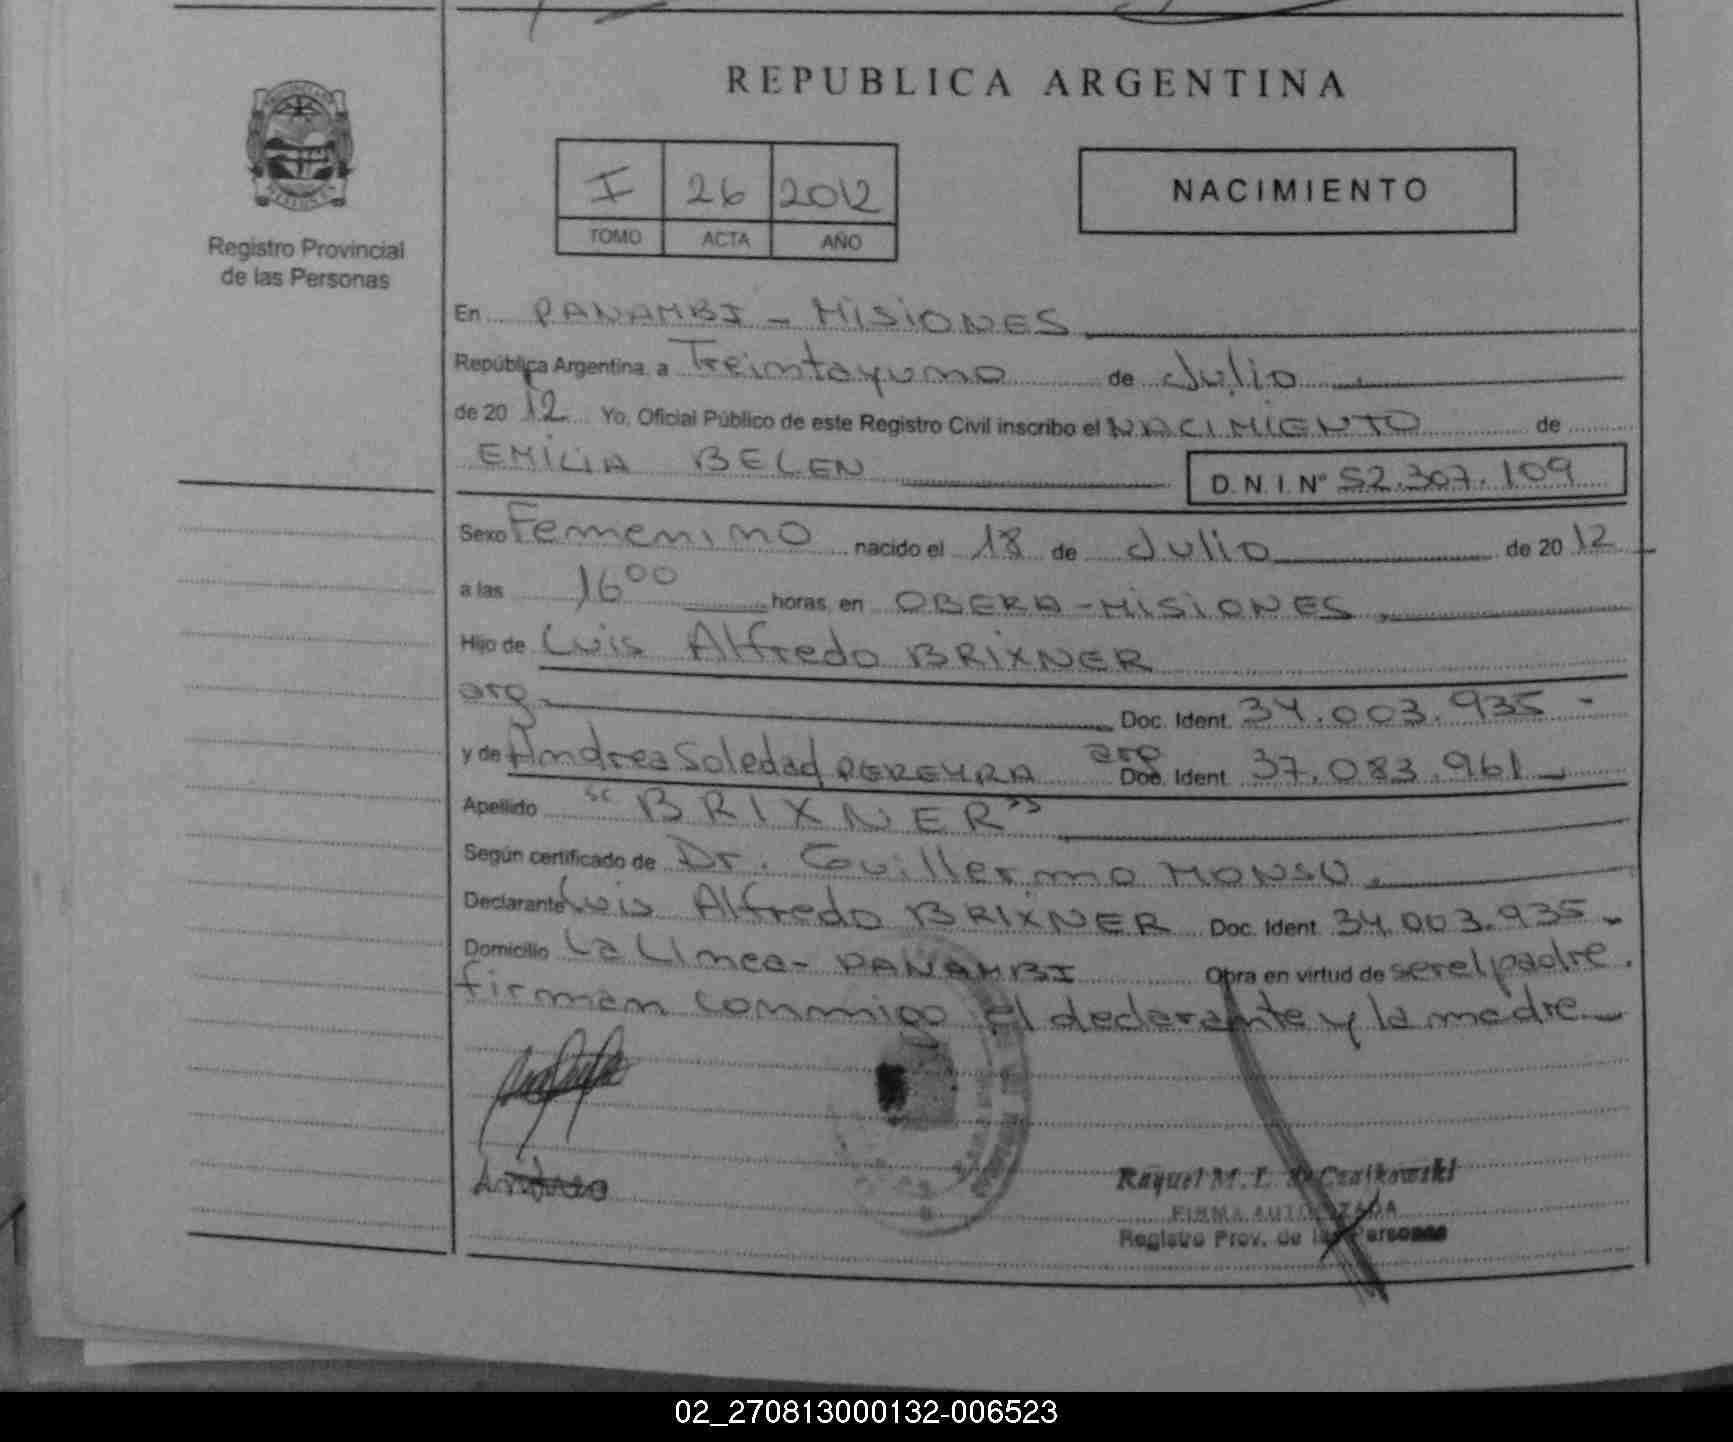 REPUBLICA ARGENTINA
Registro Provincial
de las Personas
I 26 2012
TOMO ACTA AÑO
NACIMIENTO
En PANAMBI - MISIONES
República Argentina, a Treintayuno de Julio
de 20 12 Yo, Oficial Público de este Registro Civil inscribo el NACIMIENTO de
EMILIA BELEN D.N.I. Nº 52.307.109
Sexo Femenino nacido el 18 de Julio de 20 12
a las 16 00 horas, en OBERA - MISIONES
Hijo de Luis Alfredo BRIXNER
arg. Doc. Ident. 34.003.935 -
y de Andrea Soledad PEREYRA arg Doc. Ident. 37.083.961 -
Apellido "BRIXNER"
Según certificado de Dr. Guillermo MONSU.
Declarante Luis Alfredo BRIXNER Doc. Ident. 34.003.935.-
Domicilio La Linea - PANAMBI Obra en virtud de ser el padre.
firman conmigo el declarante y la madre.-
Raquel M. L. de Czajkowski
FIRMA AUTORIZADA
Registro Prov. de las Personas
02_270813000132-006523